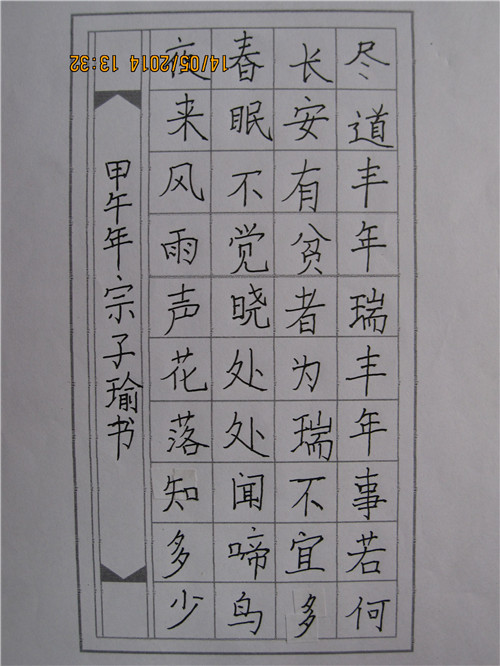 尽道丰年瑞丰年事若何
长安有贫者为瑞不宜多
春眠不觉晓处处闻啼鸟
夜来风雨声花落知多少
甲午年宗子瑜书
14/05/2014 13:32